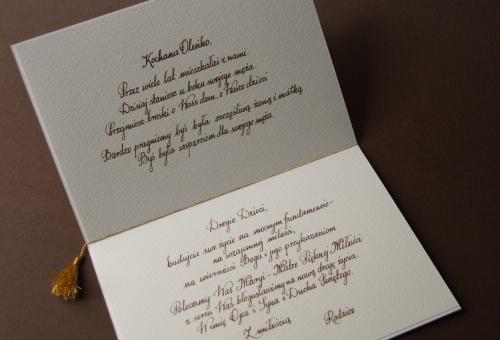 Kochana Oleńko,
Przez wiele lat mieszkałaś z nami.
Dzisiaj staniesz u boku swojego męża.
Przejmiesz troski o Wasz dom, o Wasze dzieci
Bardzo pragniemy byś była szczęśliwą żoną i matką.
Byś była wsparciem dla swojego męża.
Drogie Dzieci,
budujcie swe życie na mocnym fundamencie -
na wzajemnej miłości,
na wierności Bogu i jego przykazaniom
Polecamy Was Maryi - Matce Pięknej Miłości
z serca Was błogosławimy na nową drogę życia.
W imię Ojca i Syna i Ducha Świętego.
Z miłością Rodzice